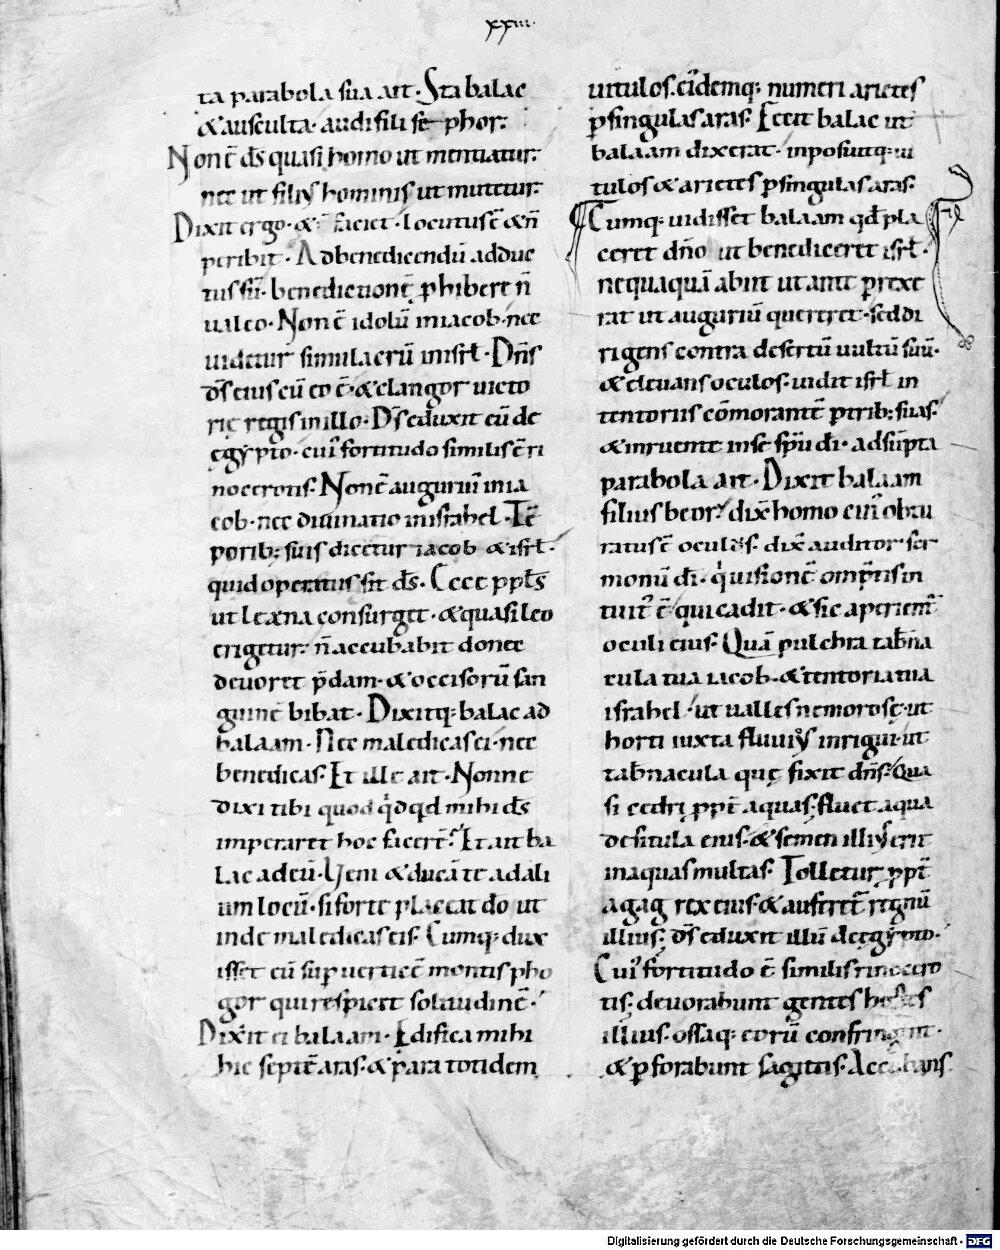 xxiii.
ta parabola sua ait · Sta balac
& ausculta · audi fili sephor:
Non ē ds̄ quasi homo ut mentiatur:
nec ut filiꝰ hominis ut mutetur:
Dixit ergo · & n̄ faciet · locutus ē & n̄
peribit · Ad benedicendū adduc
tus sū · benedictionē ꝓhibere n̄
ualeo · Non ē idolū in iacob · nec
uidetur simulacrū in isrł · Dn̄s
ds̄ eius cū eo ē · & clangor uicto
rię regis in illo · Ds̄ eduxit eū de
ęgypto · cuiꝰ fortitudo similis ē ri
nocerotis · Non ē auguriū in ia
cob · nec diuinatio in israhel · Tē
porib; suis dicetur iacob & isrł ·
quid operatus sit ds̄ · Ecce ppl̄s
ut leæna consurget · & quasi leo
erigetur: n̄ accubabit donec
deuoret p̄dam · & occisorū san
guinē bibat · Dixitq; balac ad
balaam · Nec maledicas ei · nec
benedicas · Et ille ait · Nonne
dixi tibi quod qͥdqd mihi ds̄
imperaret hoc facerē? Et ait ba
lac ad eū · Ueni & ducā te ad ali
um locū · si forte placeat do̅ ut
inde maledicas eis · Cumq; dux
isset eū suꝑ uerticē montis pho
gor qui respicit solitudinē ·
Dixit ei balaam · Edifica mihi
hic septē aras · & para totidem
uitulos · eiꝰdemq; numeri arietes
ꝑ singulas aras · Fecit balac ut
balaam dixerat · inposuitq; ui
tulos & arietes ꝑ singulas aras ·
Cumq; uidisset balaam qd̄ pla
ceret dn̄o ut benediceret isrł ·
nequaquā abiit ut ante ꝑrexe
rat ut auguriū quereret · sed di
rigens contra desertū uultū suū ·
& eleuans oculos · uidit isrł in
tentoriis cōmorantē ꝑ trib; suas ·
& inruente in se spū di̅ · adsūpta
parabola ait · Dixit balaam
filius beor · dix̄ homo cuiꝰ obtu
ratus ē oculus · dix̄ auditor ser
monū di̅ · qͥ uisionē omp̄tis in
tuitꝰ ē · qui cadit · & sic aperient̄
oculi eius · Quā pulchra tab̄na
cula tua iacob · & tentoria tua
israhel · ut ualles nemorosę · ut
horti iuxta fluuiꝰ inrigui · ut
tab̄nacula quę fixit dn̄s · Qua
si cedri ꝓpt̄ aquas · fluet aqua
de situla eius · & semen illiꝰ erit
in aquas multas · Tolletur ꝓpt̄
agag rex eius · & auferet̄ regnū
illius · ds̄ eduxit illū de ęgypto ·
Cuiꝰ fortitudo ē similis rinocero
tis · deuorabunt gentes hostes
illius · ossaq; eorū confringent ·
& ꝑforabunt sagittis · Accubans
Digitalisierung gefördert durch die Deutsche Forschungsgemeinschaft · DFG